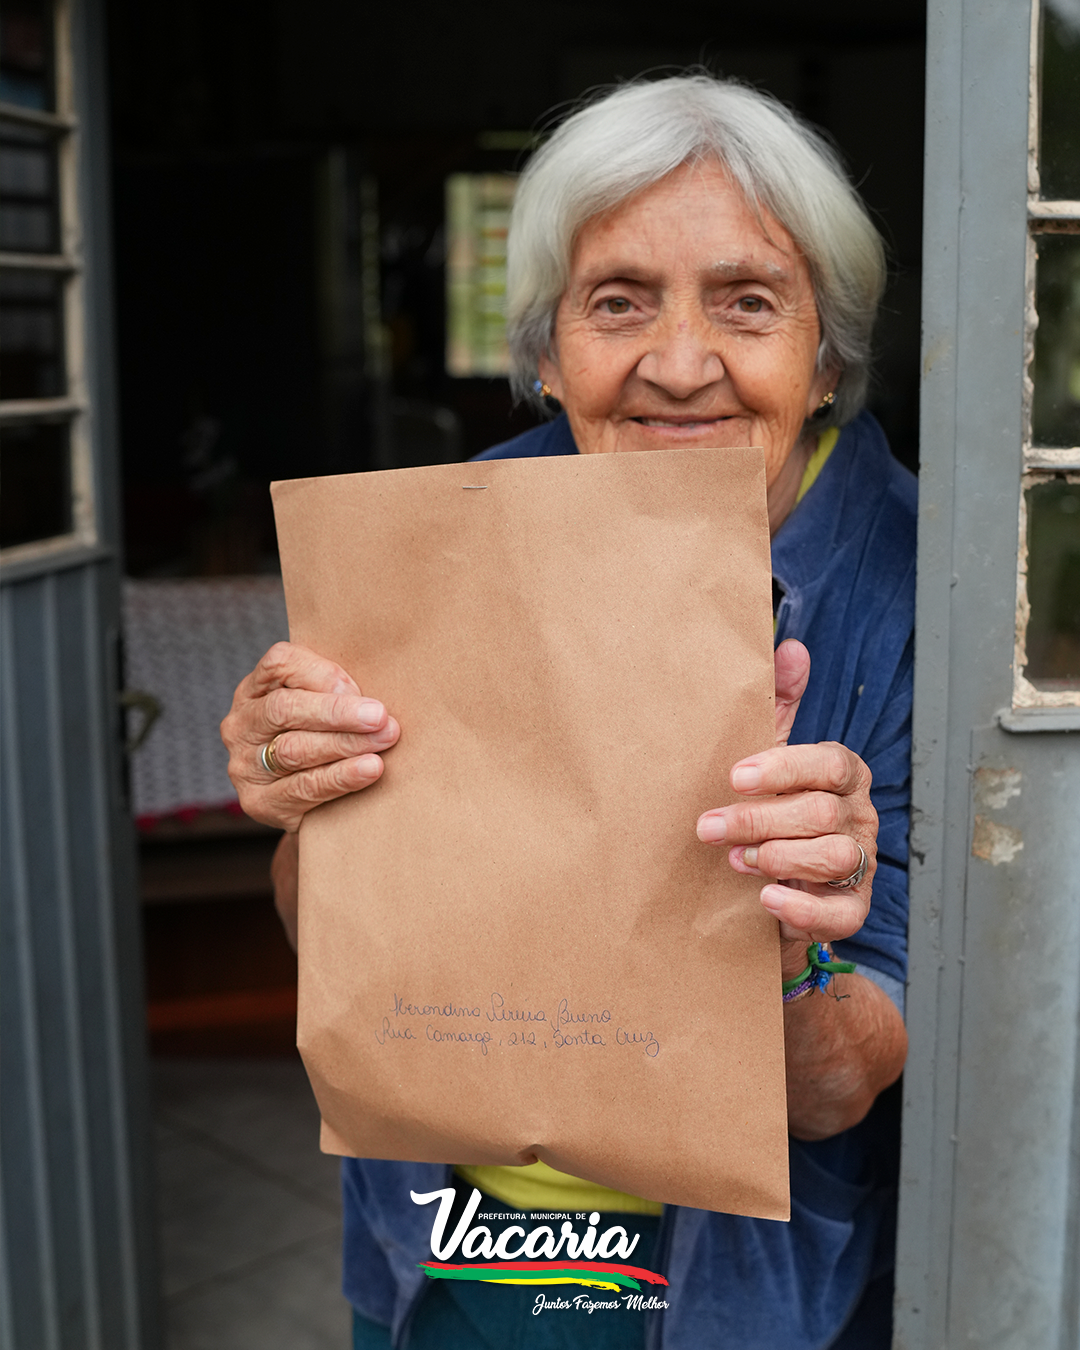 Iberondina Pereira Bueno
Rua Camargo, 212, Santa Cruz
PREFEITURA MUNICIPAL DE
Vacaria
Juntos Fazemos Melhor